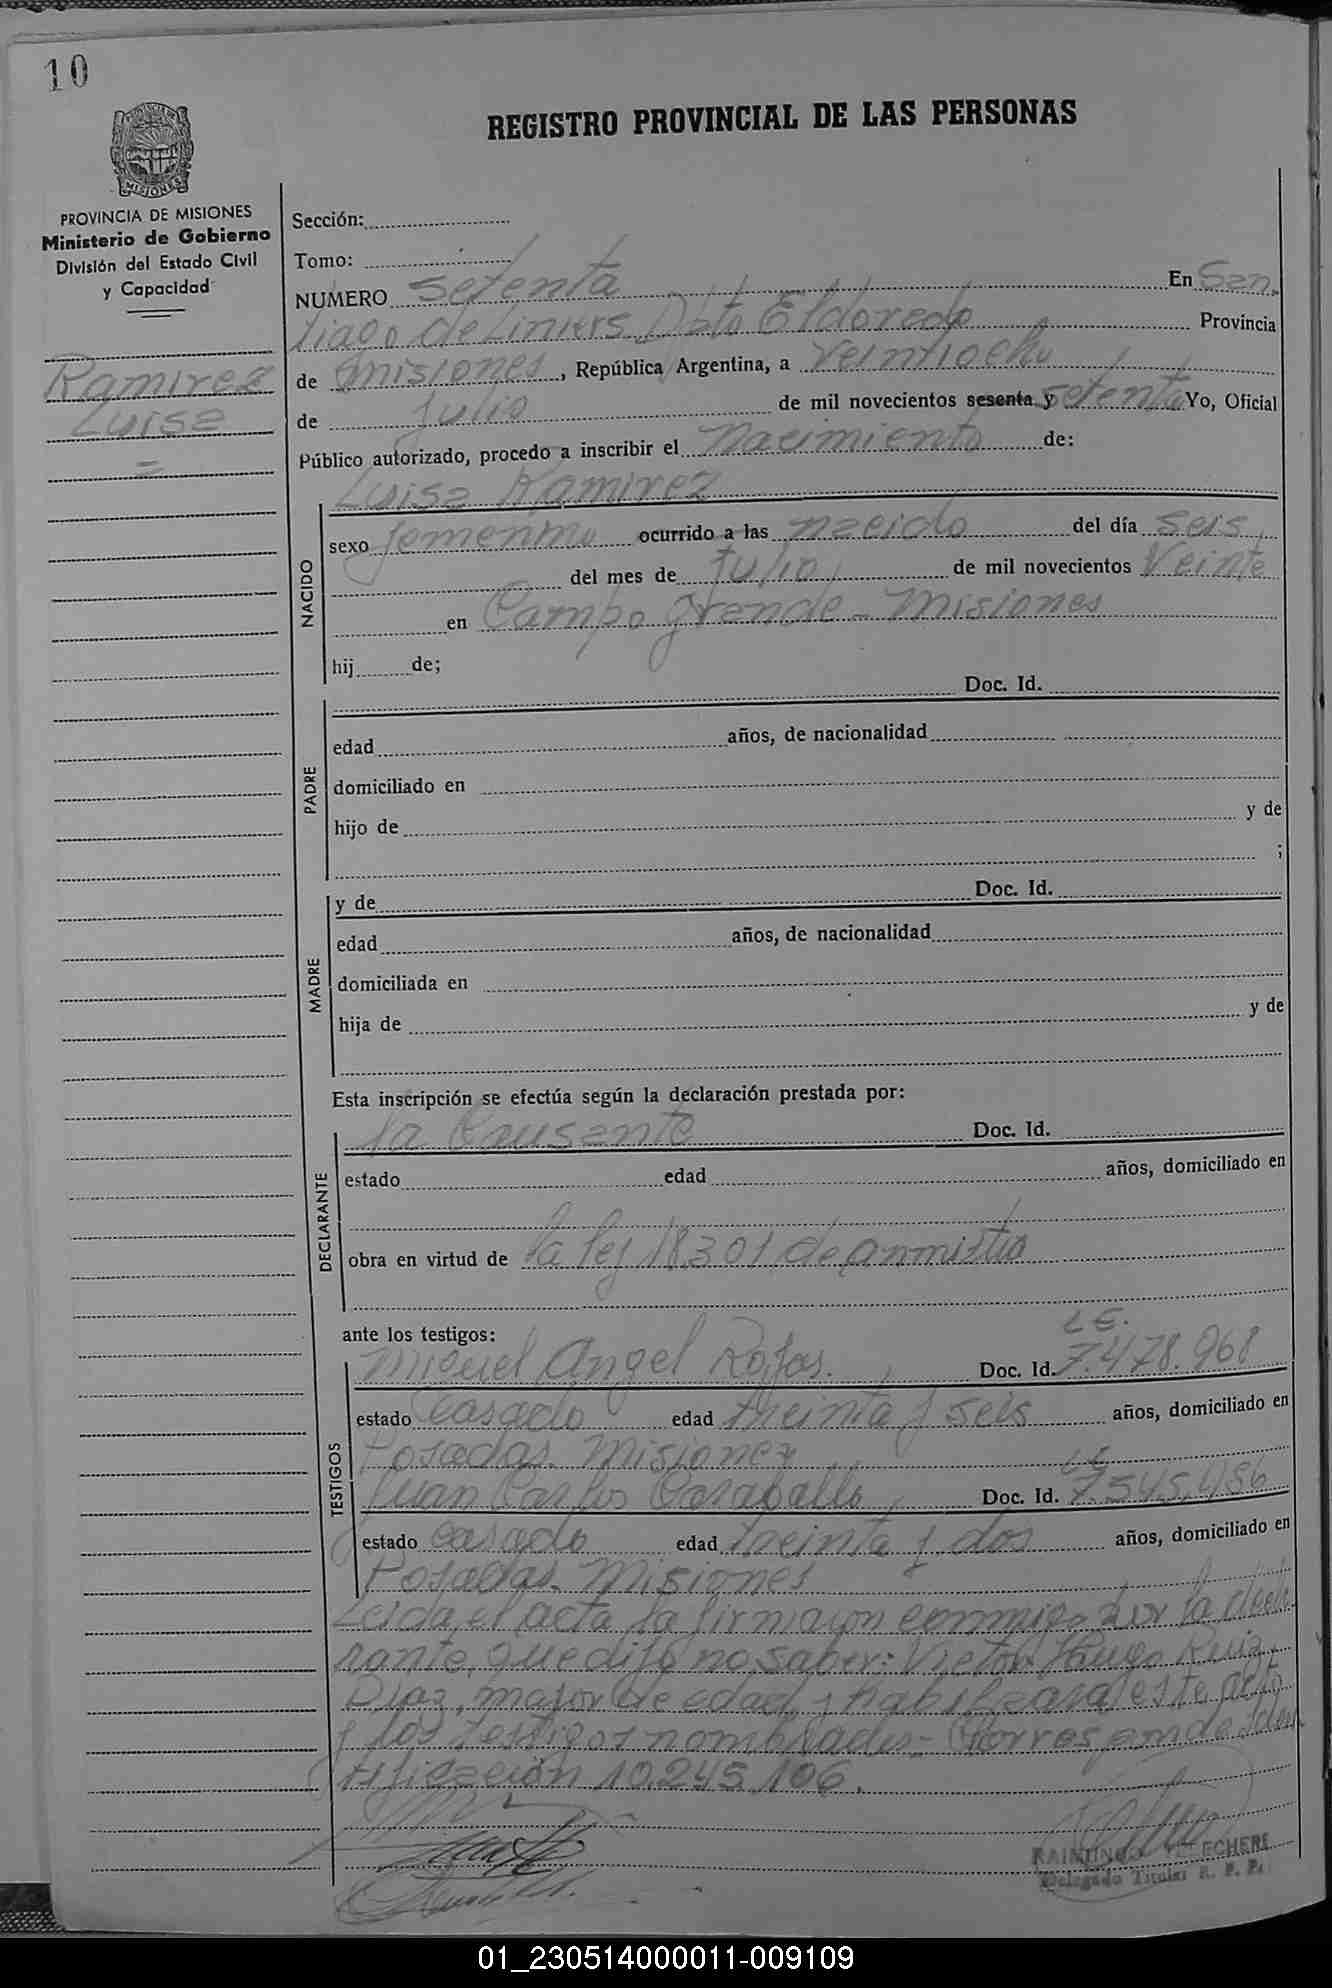 10
REGISTRO PROVINCIAL DE LAS PERSONAS
MISIONES
PROVINCIA DE MISIONES
Ministerio de Gobierno
División del Estado Civil
y Capacidad
Ramirez
Luisa
=
Sección:
Tomo:
NUMERO setenta En San
tiago de Liniers Dpto Eldorado Provincia
de misiones, República Argentina, a veintiocho
de julio de mil novecientos sesenta y setenta Yo, Oficial
Público autorizado, procedo a inscribir el nacimiento de:
Luisa Ramirez
NACIDO
sexo femenino ocurrido a las nacido del día seis
del mes de julio de mil novecientos veinte
en Campo grande - misiones
hij de;
Doc. Id.
PADRE
edad años, de nacionalidad
domiciliado en
hijo de y de
;
MADRE
y de Doc. Id.
edad años, de nacionalidad
domiciliada en
hija de y de
Esta inscripción se efectúa según la declaración prestada por:
DECLARANTE
la Causante Doc. Id.
estado edad años, domiciliado en
obra en virtud de la ley 18.301 de anmistia
ante los testigos:
TESTIGOS
L E.
Miguel Angel Rojas. Doc. Id. 7.478.968
estado casado edad treinta y seis años, domiciliado en
Posadas. Misiones
L E
Juan Carlos Caraballo Doc. Id. 7.545.486
estado casado edad treinta y dos años, domiciliado en
Posadas. Misiones
Leida el acta la firman conmigo por la decla
rante, que dijo no saber: Victor Hugo Ruiz
Diaz, mayor de edad y habil para este acto
y los testigos nombrados - Corresponde Iden
tificación 10.245.106.
RAIMUNDO TELECHERE
Delegado Titular R. P. P.
01_230514000011-009109